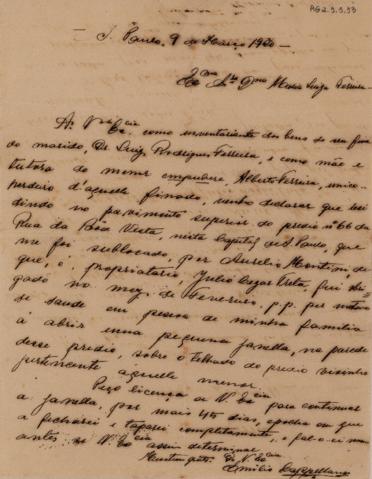 RG2.5.5.53
S. Paulo, 9 de Março 1920
Ex.ma Sr.a D.na Maria Luiza Ferreira
A V.Ex.cia como inventariante dos bens do seu fina
do marido, Dr Luiz Rodrigues Ferreira, e como mãe e
tutora do menor impubere, Alberto Ferreira, unico
herdeiro d'aquelle finado, venho declarar que resi
dindo no pavimento superior do predio nº 66 da
Rua da Bôa Vista, nesta Capital de S. Paulo, que
me foi sublocado, por Aurelio
que, o propriatario, Julio Cezar fui obri
gado no mez de Fevereiro, p.p. por motivo
de saude em pessoa de minha familia
á abrir uma pequena janella, na parede
desse predio, sobre o telhado do predio visinho
pertencente aquelle menor.
Peço licença a V. Ex.cia para continuar
a janella, por mais 45 dias, epocha em que
a fecharei e taparei completamente, e fal-o-ei
antes se V. Ex.cia assim determinar
De V. Ex.cia
Emilio Cappellano